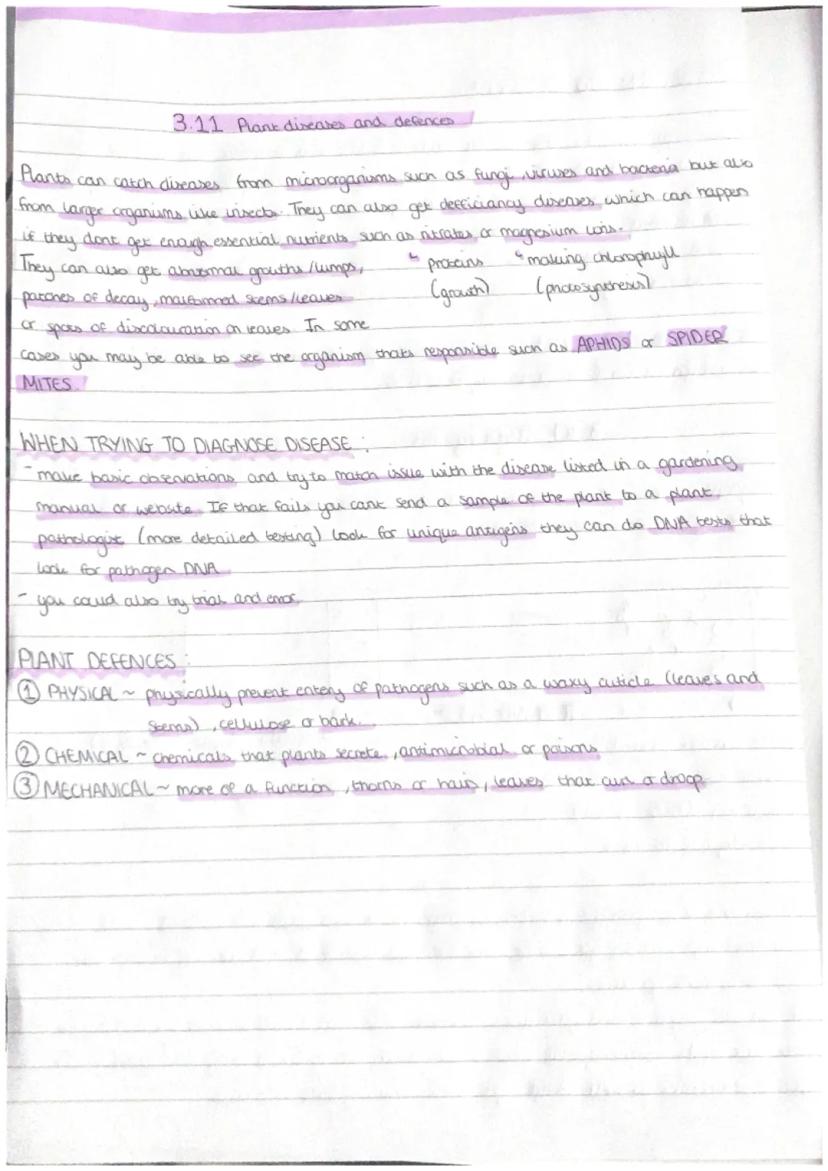 3.11 Plant diseases and defences
Plants can catch diseases from microorganisms such as fungi, viruses and bacteria but also
from larger organisms like insects. They can also get defficiancy diseases which can happen
if they dont get enough essential nutrients such as nitrates or magnesium ions.
They can also get abnormal growths / lumps, ↳ proteins ↳ making chlorophyll
patches of decay, malformed stems / leaves (growth) (photosynthesis)
or spots of discolouration on leaves In some
cases you may be able to see the organism thats responsible such as APHIDS or SPIDER
MITES.
WHEN TRYING TO DIAGNOSE DISEASE :
- make basic observations and try to match issue with the disease listed in a gardening
manual or website. If that fails you cant send a sample of the plant to a plant
pathologist (more detailed testing) look for unique antigens they can do DNA tests that
look for pathogen DNA
- you could also try trial and error.
PLANT DEFENCES :
① PHYSICAL ~ physically prevent entery of pathogens such as a waxy cuticle (leaves and
stems), cellulose or bark.
② CHEMICAL ~ chemicals that plants secrete, antimicrobial or poisons
③ MECHANICAL ~ more of a function, thorns or hairs, leaves that curl or droop